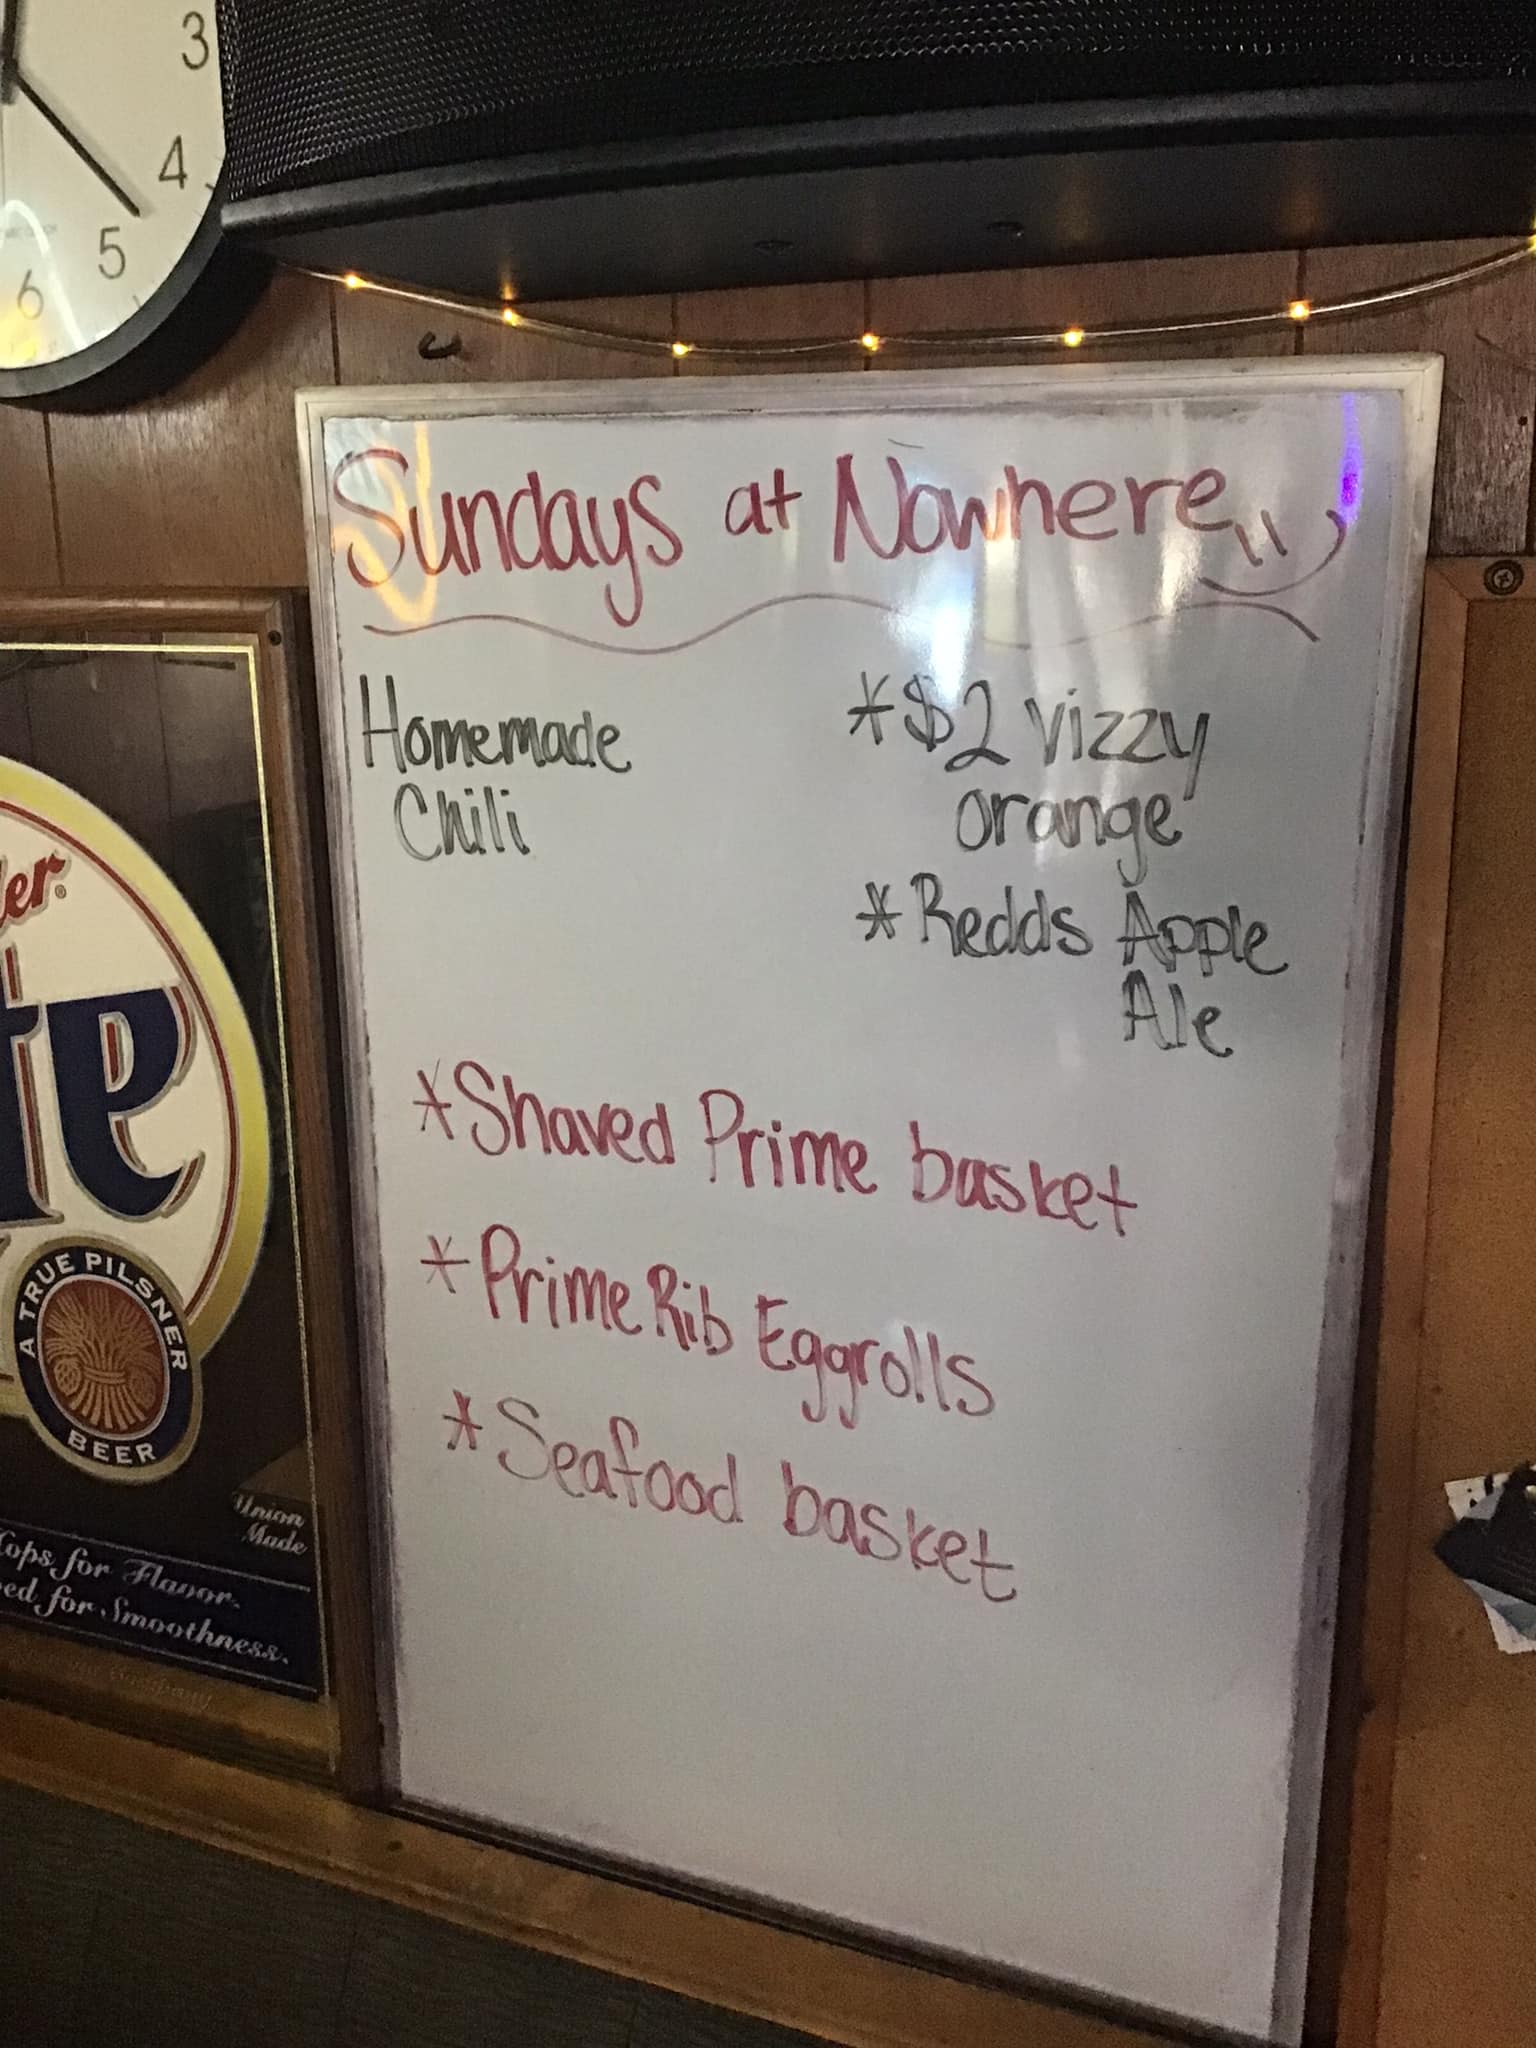 3
4
5
6
Sundays at Nowhere
Homemade
Chili
*$2 Vizzy
orange
*Redds Apple
Ale
*Shaved Prime basket
*Prime Rib Eggrolls
*Seafood basket
er®
te
A TRUE PILSNER
BEER
Union
Made
Hops for Flavor.
ed for Smoothness.